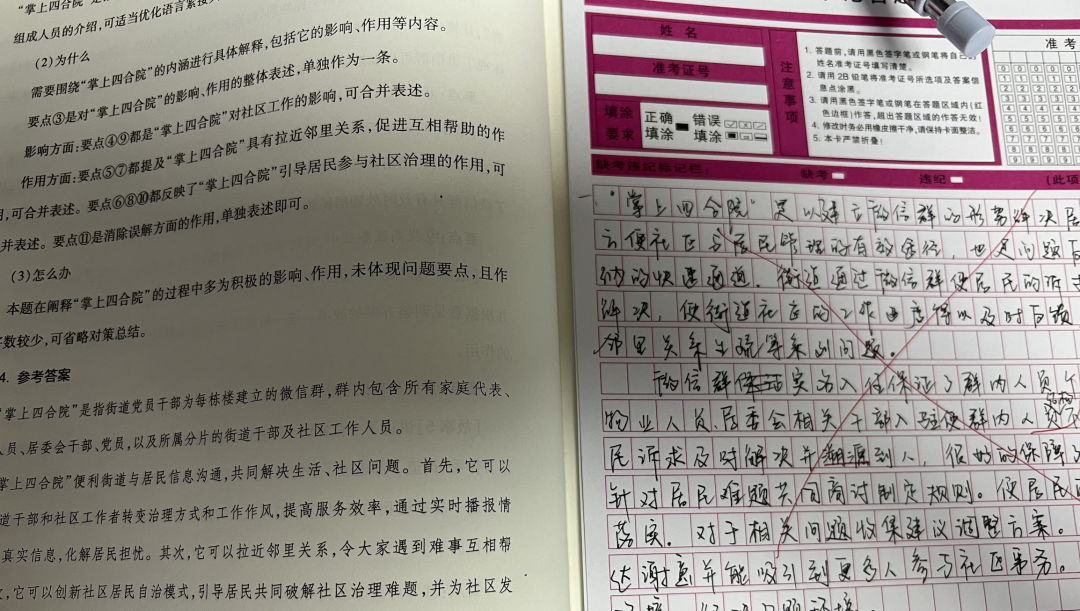 “掌上四合院”
组成人员的介绍,可适当优化语言紧接
(2)为什么
需要围绕“掌上四合院”的内涵进行具体解释,包括它的影响、作用等内容。
要点③是对“掌上四合院”的影响、作用的整体表述,单独作为一条。
影响方面:要点④⑨都是“掌上四合院”对社区工作的影响,可合并表述。
作用方面:要点⑤⑦都提及“掌上四合院”具有拉近邻里关系,促进互相帮助的作
用,可合并表述。要点⑥⑧⑩都反映了“掌上四合院”引导居民参与社区治理的作用,可
并表述。要点⑪是消除误解方面的作用,单独表述即可。
(3)怎么办
本题在阐释“掌上四合院”的过程中多为积极的影响、作用,未体现问题要点,且作
数较少,可省略对策总结。
4. 参考答案
掌上四合院”是指街道党员干部为每栋楼建立的微信群,群内包含所有家庭代表、
人员、居委会干部、党员,以及所属分片的街道干部及社区工作人员。
掌上四合院”便利街道与居民信息沟通,共同解决生活、社区问题。首先,它可以
道干部和社区工作者转变治理方式和工作作风,提高服务效率,通过实时播报情
真实信息,化解居民担忧。其次,它可以拉近邻里关系,令大家遇到难事互相帮
,它可以创新社区居民自治模式,引导居民共同破解社区治理难题,并为社区发
姓名
准考证号
填涂要求
正确填涂
错误填涂
注意事项
1. 答题前,请用黑色签字笔或钢笔将自己的
姓名准考证号填写清楚。
2. 请用2B铅笔将准考证号所选项及答案信
息点涂黑。
3. 请用黑色签字笔或钢笔在答题区域内(红
色边框)作答,超出答题区域的作答无效!
4. 修改时务必用橡皮擦干净,请保持卡面整洁。
5. 本卡严禁折叠!
准考
缺考违纪标记栏:
缺考
违纪
(此项
一、“掌上四合院”是以建立微信群的形势解决居
方便社区与居民管理的有效途径,也是问题
纳的快速通道。街道通过微信群使居民的诉
解决,使街道社区的工作 得以及时反馈
邻里关系生疏等系列问题。
微信群 实名入住保证了群内人员
物业人员、居委会相关干部入驻使群内人员
民诉求及时解决并溯源到人,很好的保障
针对居民难题共同商讨制定规则。使居民
落实。对于相关问题收集建议调整方案。
达谢意并能吸引到更多人参与社区事务。